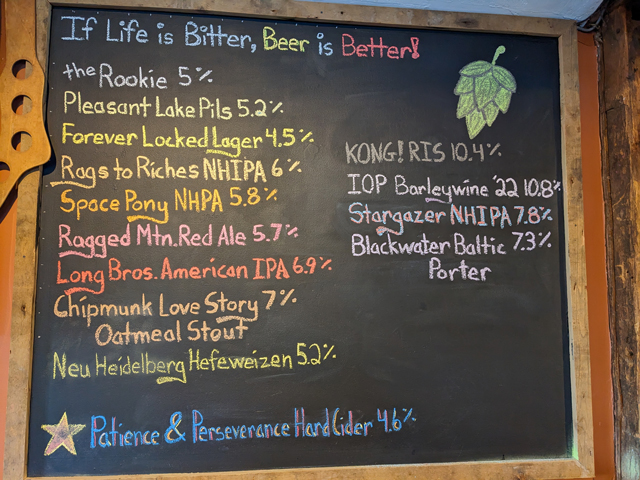 If Life is Bitter, Beer is Better!
the Rookie 5%
Pleasant Lake Pils 5.2%
Forever Locked Lager 4.5%
Rags to Riches NHIPA 6%
Space Pony NHPA 5.8%
Ragged Mtn. Red Ale 5.7%
Long Bros. American IPA 6.9%
Chipmunk Love Story 7%
Oatmeal Stout
Neu Heidelberg Hefeweizen 5.2%
KONG! RIS 10.4%
IOP Barleywine '22 10.8%
Stargazer NHIPA 7.8%
Blackwater Baltic 7.3%
Porter
Patience & Perseverance Hard Cider 4.6%